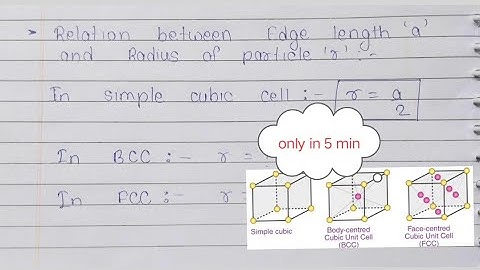 > Relation between Edge length 'a'
and Radius of particle 'r' :-
In simple cubic cell :- r = a/2
only in 5 min
In BCC :- r =
In FCC :- r =
Simple cubic
Body-centred
Cubic Unit Cell
(BCC)
Face-centred
Cubic Unit Cell
(FCC)